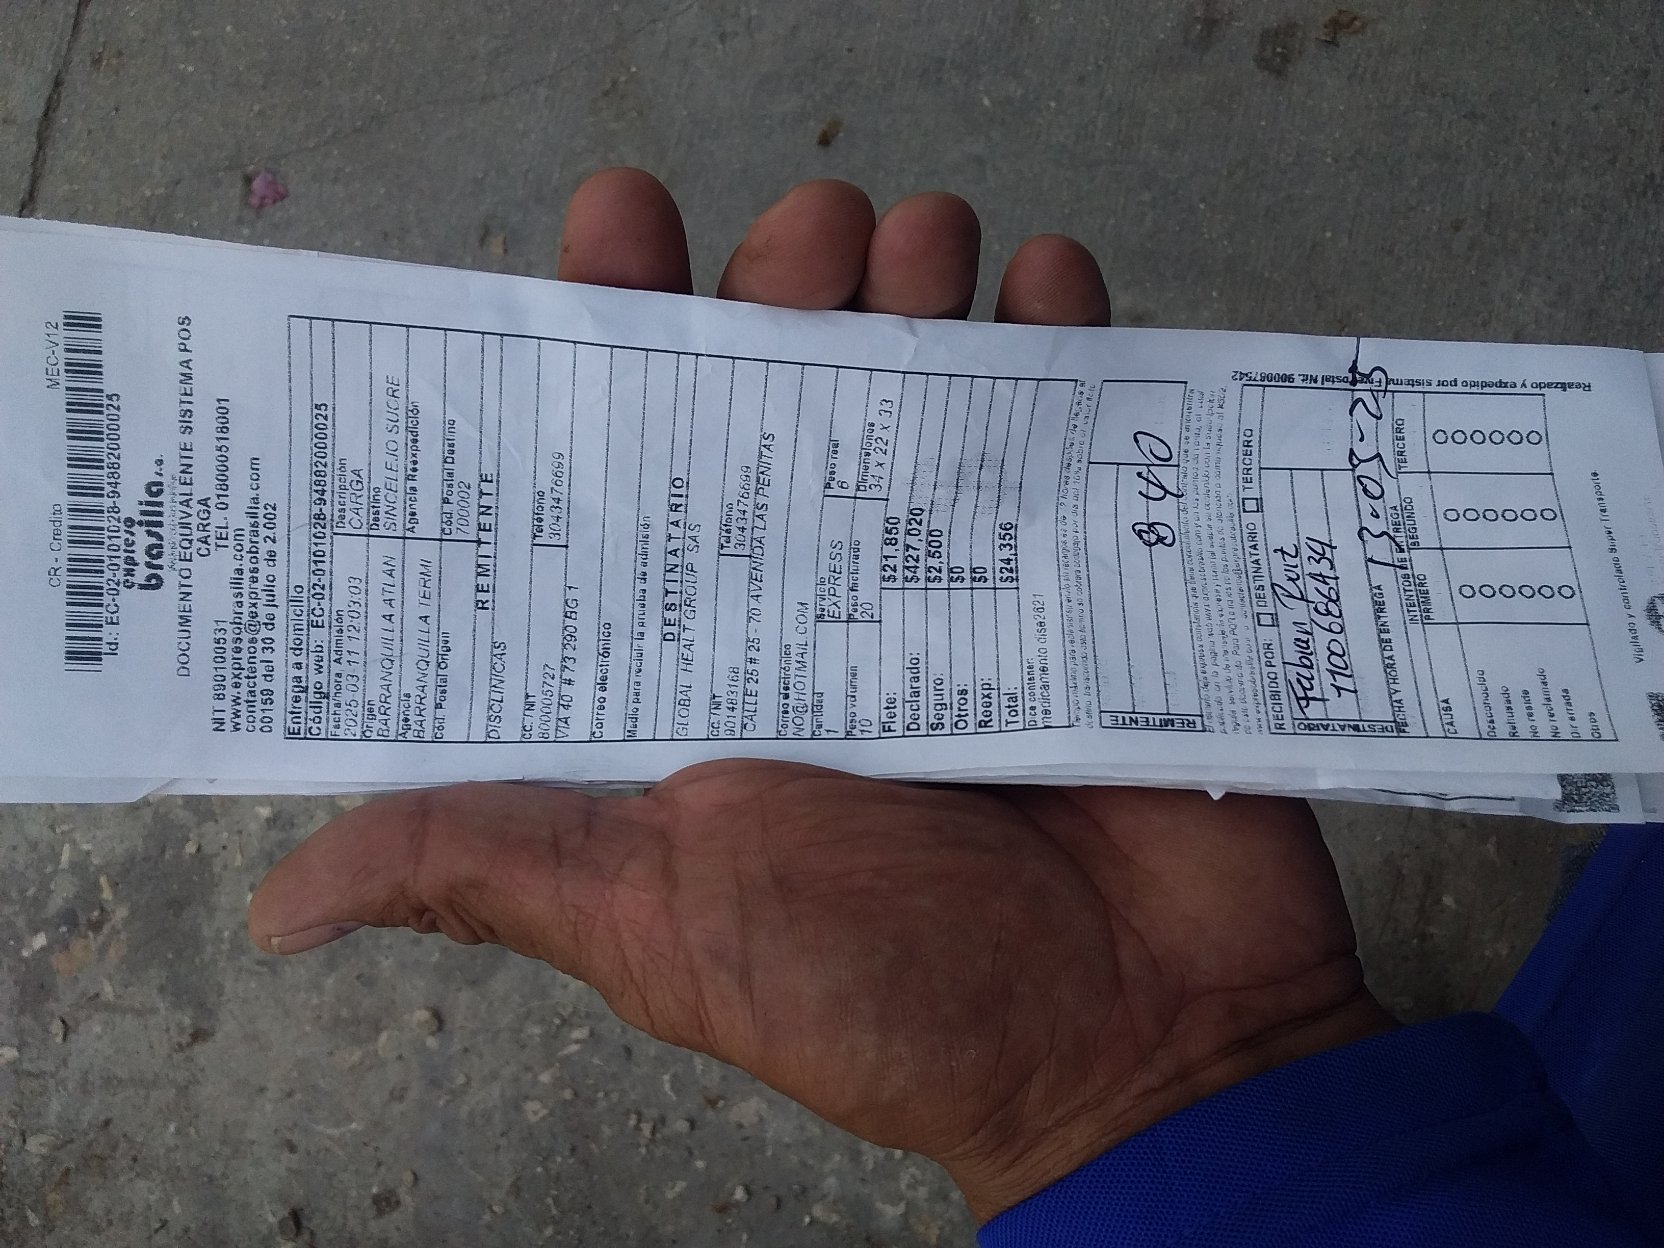 CR - Credito MEC-V12
Id.: EC-02-0101028-94882000025
expreso
brasilia s.a.
DOCUMENTO EQUIVALENTE SISTEMA POS
CARGA
NIT 890100531 TEL. 018000518001
www.expresobrasilia.com
contactenos@expresobrasilia.com
00159 del 30 de julio de 2.002
Entrega a domicilio
Código web: EC-02-0101028-94882000025
Fecha/hora Admisión Descripción
2025-03-11 12:03:03 CARGA
Origen Destino
BARRANQUILLA ATLAN SINCELEJO SUCRE
Agencia Agencia Reexpedición
BARRANQUILLA TERMI
Cód. Postal Origen Cód. Postal Destino
700002
REMITENTE
DISCLINICAS
CC. / NIT Teléfono
800005727 3043476699
VIA 40 # 73 290 BG 1
Correo electrónico
Medio para recibir la prueba de admisión
DESTINATARIO
GLOBAL HEALT GROUP SAS
CC. / NIT Teléfono
901483168 3043476699
CALLE 25 # 25 - 70 AVENIDA LAS PENITAS
Correo electrónico
NO@HOTMAIL.COM
Cantidad Servicio Peso real
1 EXPRESS 6
Peso volumen Peso facturado Dimensiones
10 20 34 x 22 x 33
Flete: $21,850
Declarado: $427,020
Seguro: $2,500
Otros: $0
Reexp: $0
Total: $24,356
Dice contener:
medicamento dise2621
REMITENTE
8 40
RECIBIDO POR: DESTINATARIO TERCERO
DESTINATARIO
Fabian Ruiz
1100686434
FECHA Y HORA DE ENTREGA 13-03-25
INTENTOS DE ENTREGA
CAUSA PRIMERO SEGUNDO TERCERO
Desconocido
Rehusado
No reside
No reclamado
Dir errada
Otros
Vigilado y controlado Super Transporte
Realizado y expedido por sistema Postal Nit. 900087542